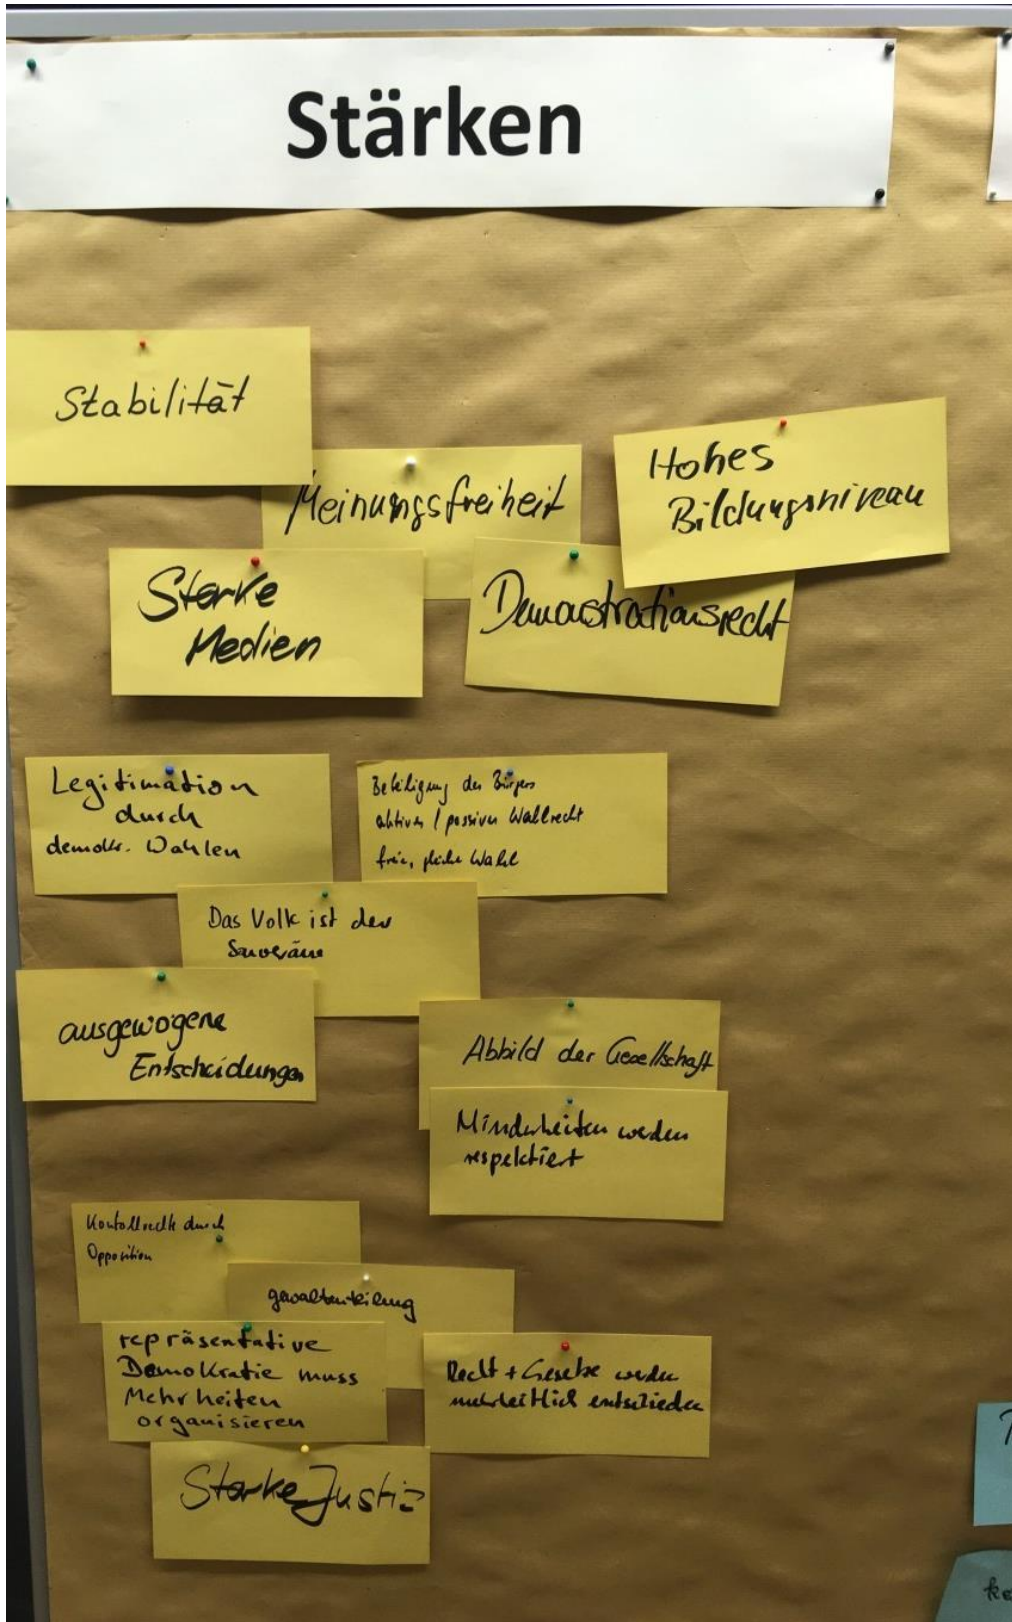 Stärken
Stabilität
Meinungsfreiheit
Hohes
Bildungsniveau
Starke
Medien
Demonstrationsrecht
Legitimation
durch
demokr. Wahlen
Beteiligung des Bürgers
aktives / passives Wahlrecht
freie, gleiche Wahl
Das Volk ist der
Souverän
ausgewogene
Entscheidungen
Abbild der Gesellschaft
Minderheiten werden
respektiert
Kontrollrechte durch
Opposition
gewaltenteilung
repräsentative
Demokratie muss
Mehrheiten
organisieren
Recht + Gesetze werden
mehrheitlich entschieden
Starke Justiz